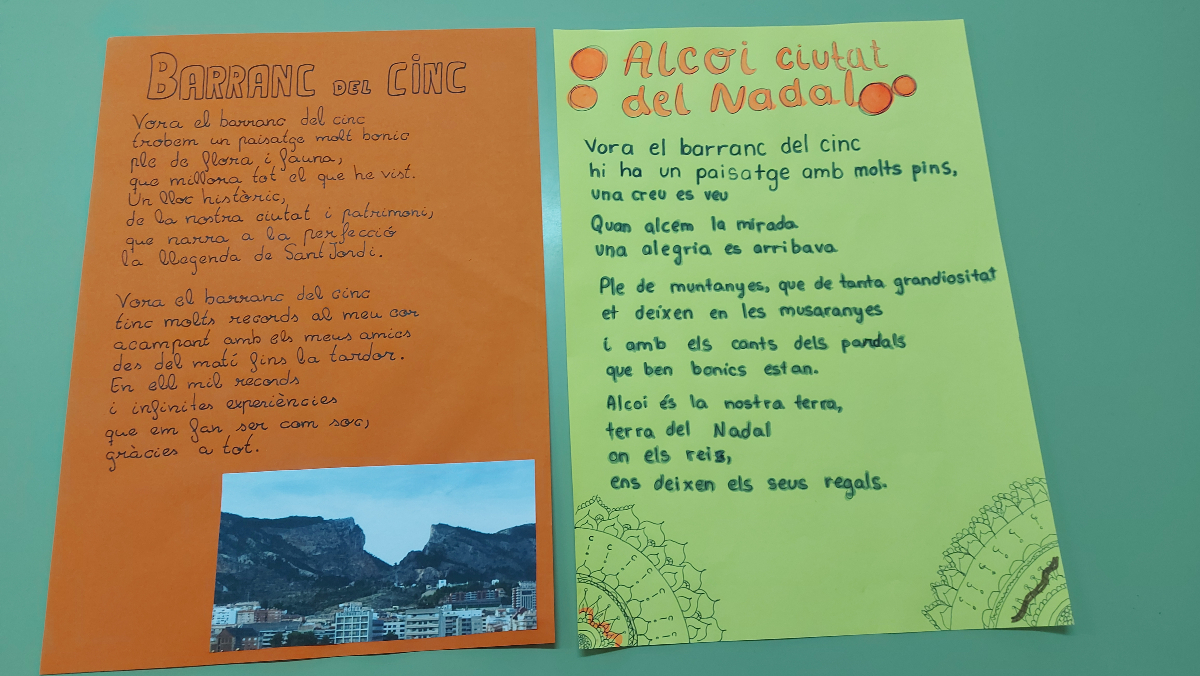 BARRANC DEL CINC
Vora el barranc del cinc
trobem un paisatge molt bonic
ple de flora i fauna,
que millora tot el que he vist.
Un lloc històric,
de la nostra ciutat i patrimoni,
que narra a la perfecció
la llegenda de Sant Jordi.
Vora el barranc del cinc
tinc molts records al meu cor
acampant amb els meus amics
des del matí fins la tardor.
En ell mil records
i infinites experiències
que em fan ser com soc,
gràcies a tot.
Alcoi ciutat
del Nadal
Vora el barranc del cinc
hi ha un paisatge amb molts pins,
una creu es veu
Quan alcem la mirada
una alegria es arribava
Ple de muntanyes, que de tanta grandiositat
et deixen en les musaranyes
i amb els cants dels pardals
que ben bonics estan.
Alcoi és la nostra terra,
terra del Nadal
on els reis,
ens deixen els seus regals.